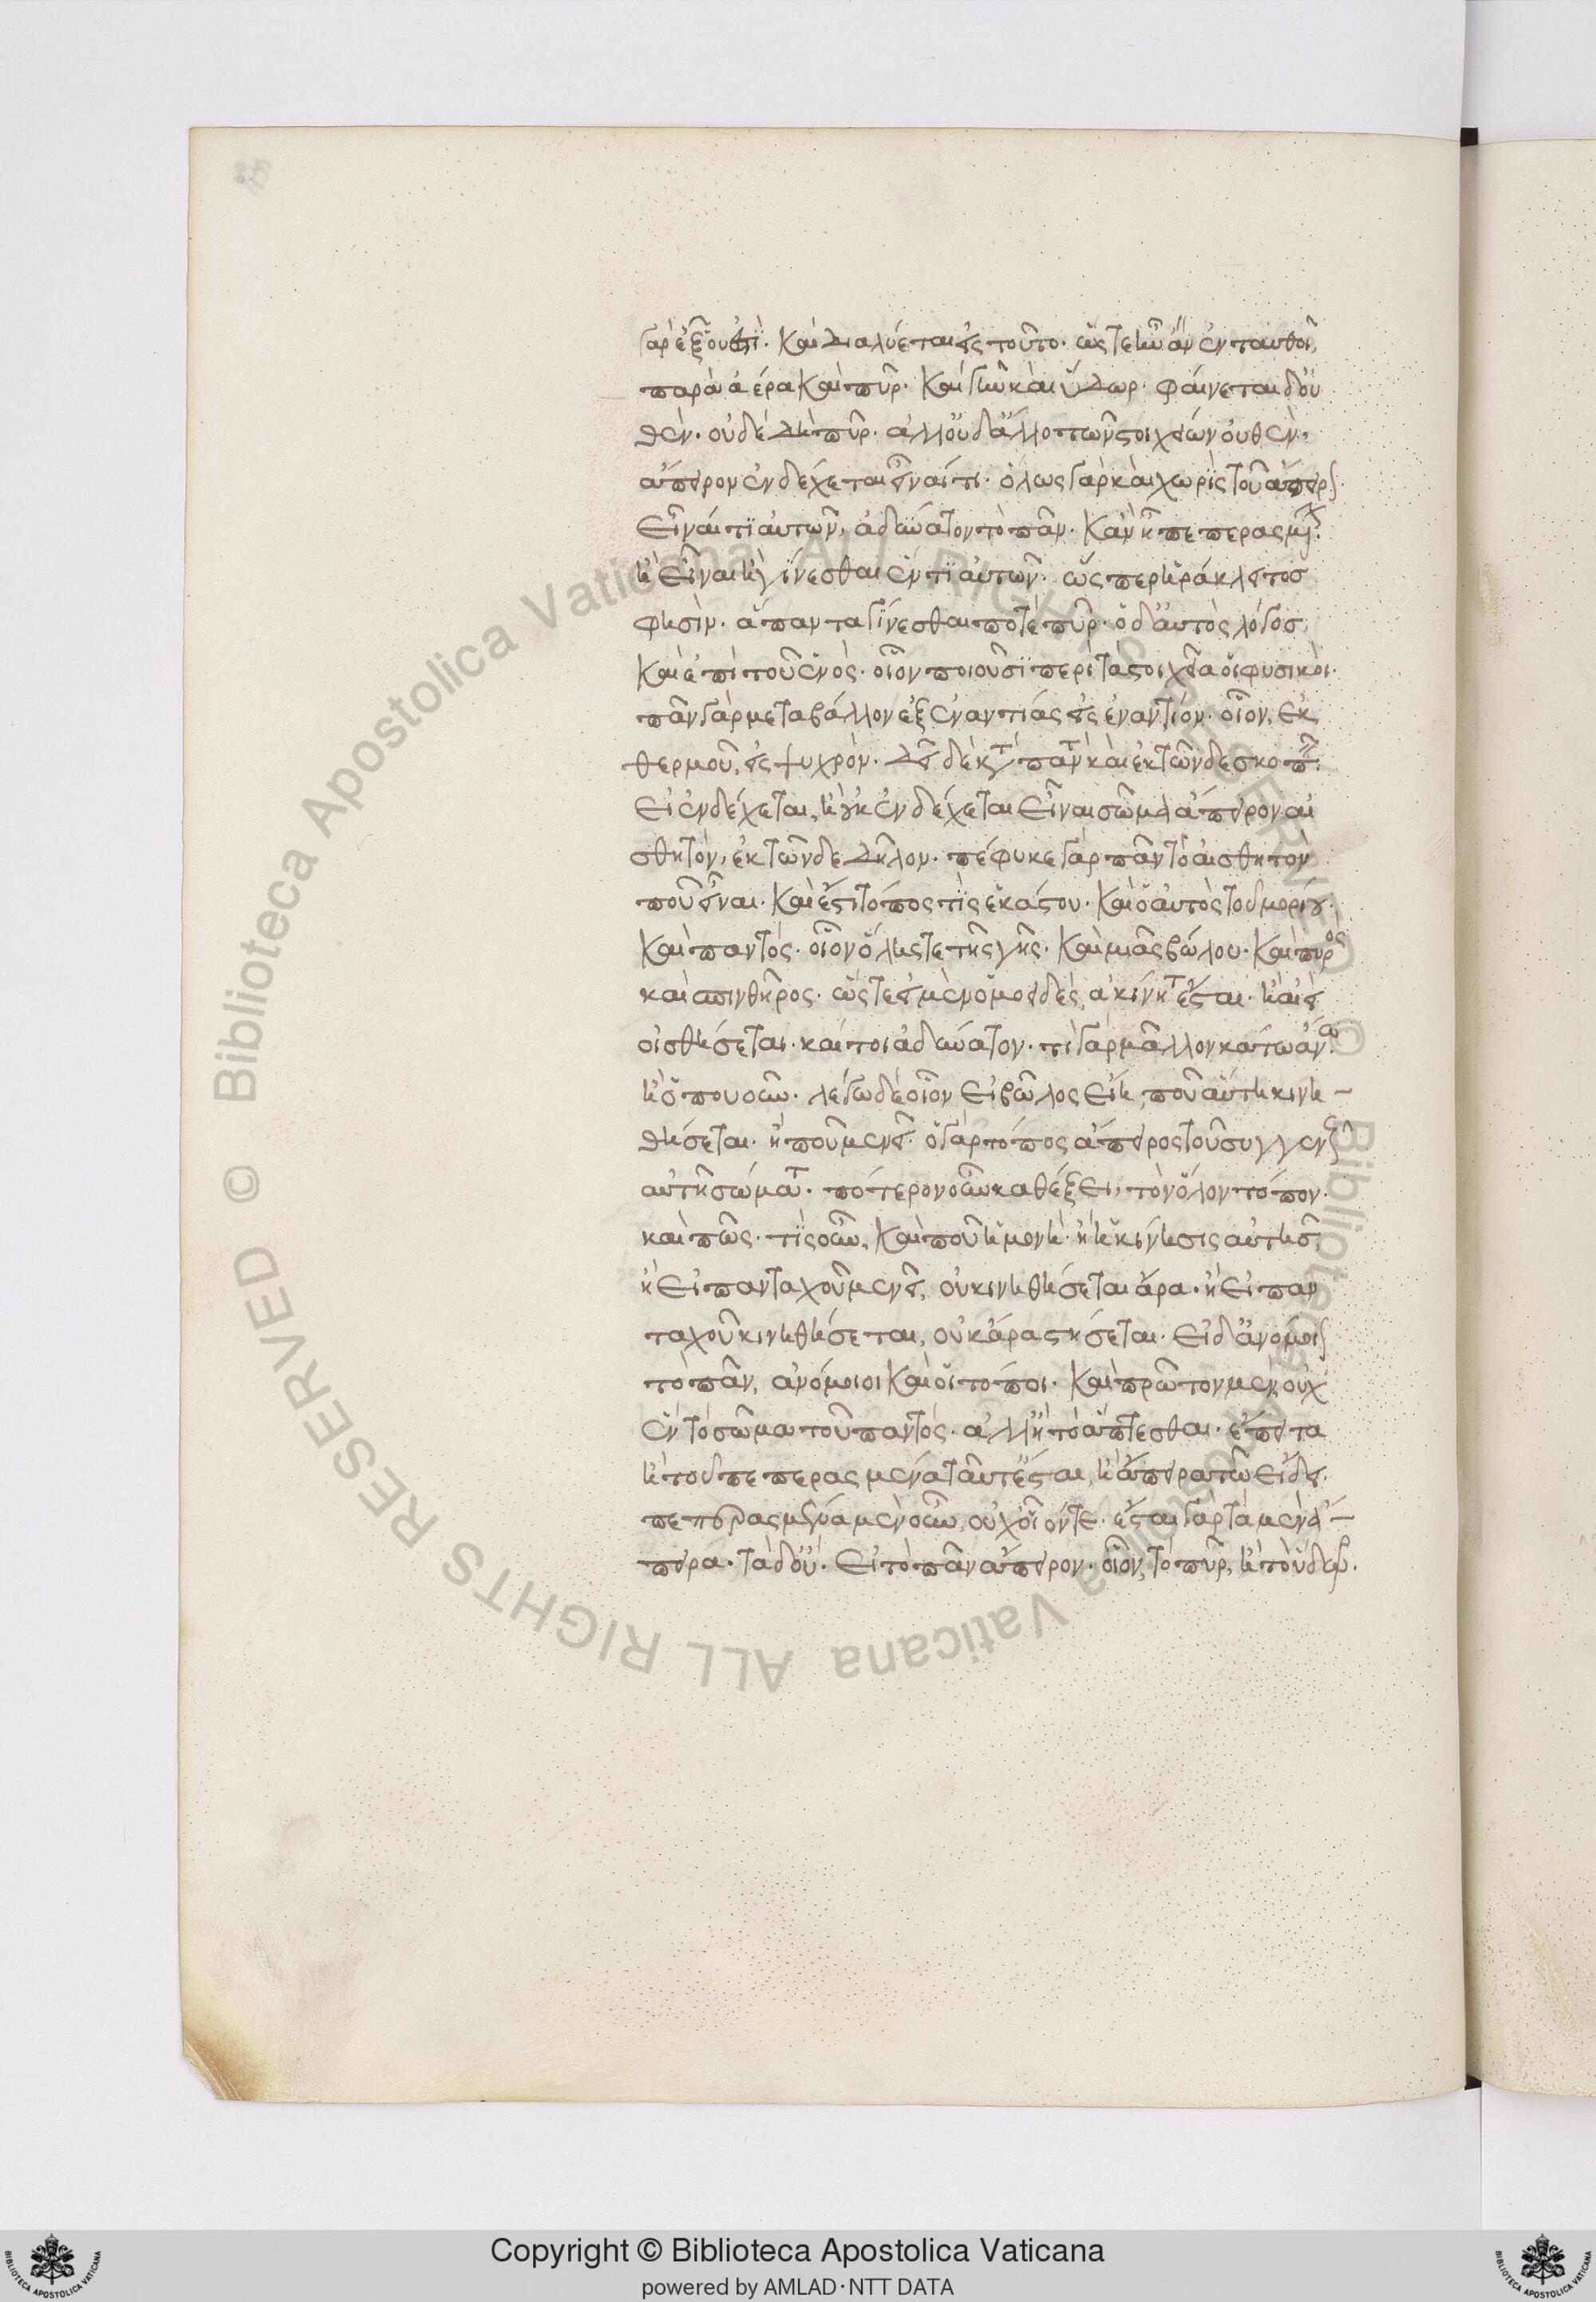 γὰρ ἐξ οὗ ἐστὶ. καὶ διαλύεται εἰς τοῦτο. ὥστε ἦν ἂν ἐνταυθοῖ,
παρὰ ἀέρα καὶ πῦρ. καὶ γῆν καὶ ὕδωρ. φαίνεται δ' οὐ
θέν. οὐδὲ δὴ πῦρ. ἀλλ' οὐδ' ἄλλό τι τῶν στοιχείων οὐθὲν,
ἄπειρον ἐνδέχεται εἶναί τι. ὅλως γὰρ καὶ χωρὶς τοῦ ἄπειρ
εἶναί τι αὐτῶν, ἀδύνατον τὸ πᾶν. κἂν ᾖ πεπερασμ
ἢ εἶναι ἢ γίνεσθαι ἕν τι αὐτῶν. ὥσπερ ἡράκλειτοσ
φησὶν. ἅπαντα γίνεσθαι ποτὲ πῦρ. ὁ δ' αὐτὸς λόγοσ
καὶ ἐπὶ τοῦ ἑνός. οἷον ποιοῦσι περὶ τὰ στοιχεῖα οἱ φυσικοὶ.
πᾶν γὰρ μεταβάλλον ἐξ ἐναντίας εἰς ἐναντίον. οἷον, ἐκ
θερμοῦ, εἰς ψυχρὸν. δεῖ δὲ κατὰ παντ καὶ ἐκ τῶνδε σκοπεῖν.
εἰ ἐνδέχεται, ἢ οὐκ ἐνδέχεται εἶναι σῶμα ἄπειρον αἰ
σθητὸν, ἐκ τῶνδε δῆλον. πέφυκε γὰρ πᾶν τὸ αἰσθητὸν
ποῦ εἶναι. καὶ ἔστι τόπος τὶς ἑκάστου. καὶ ὁ αὐτὸς τοῦ μορίου.
καὶ παντός. οἷον ὅλης τε τῆς γῆς. καὶ μιᾶς βώλου. καὶ πυρὸς
καὶ σπινθῆρος. ὥστε εἰ μὲν ὁμοειδὲς, ἀκίνητ ἔσται. ἢ ἀεὶ
οἰσθήσεται. καίτοι ἀδύνατον. τί γὰρ μᾶλλον κάτω ἢ ἄνω.
ἢ ὁπουοῦν. λέγω δὲ οἷον εἰ βῶλος εἴη, ποῦ αὕτη κινη–
θήσεται. ἢ ποῦ μενεῖ. ὁ γὰρ τόπος ἄπειρος τοῦ συγγεν
αὐτῆ σώματ. πότερον οὖν καθέξει, τὸν ὅλον τόπον.
καὶ πῶς. τίς οὖν, καὶ ποῦ ἡ μονὴ. ἢ ἡ κίνησις αὐτῆσ,
ἢ εἰ πανταχοῦ μενεῖ, οὐ κινηθήσεται ἄρα. ἢ εἰ παν
ταχοῦ κινηθήσεται, οὐκ ἄρα στήσεται. εἰ δ' ἀνόμοι
τὸ πᾶν, ἀνόμοιοι καὶ οἱ τόποι. καὶ πρῶτον μὲν, οὐχ
ἓν τὸ σῶμα τοῦ παντός. ἀλλ' ἢ τὸ ἅπτεσθαι. ἔπειτα
ἤτοι πεπερασμένα ταῦτ' ἔσται, ἢ ἄπειρα τῷ εἴδει.
πεπερασμένα μὲν οὖν, οὐχ οἷόν τε. ἔσται γὰρ τὰ μὲν ἄ–
πειρα. τὰ δ' οὔ. εἰ τὸ πᾶν ἄπειρον. οἷον, τὸ πῦρ, ἢ τὸ ὕδωρ.